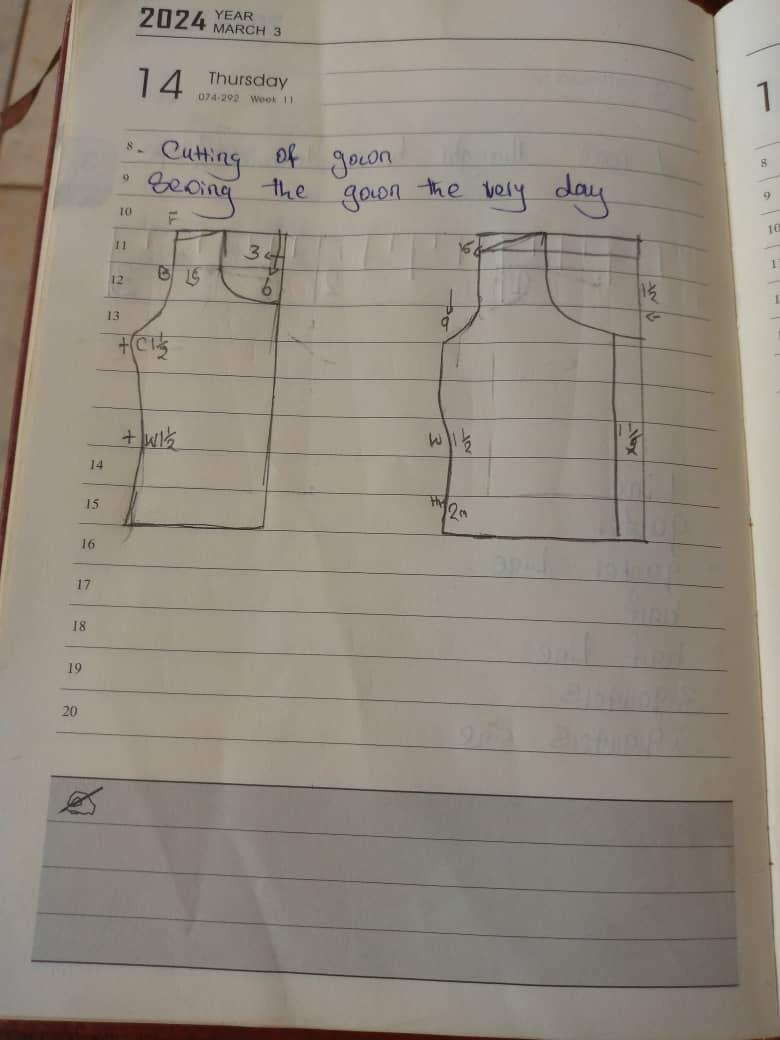 2024 YEAR
MARCH 3
14 Thursday
074-292 Week 11
8 - Cutting of gown
9 Sewing the gown the very day
10
F
11 3
12 B 15 6 1½
13 9
+ C 1½
+ W 1½ W 1½ 1½
14
15 2n
16
17
18
19
20
1
8
9
10